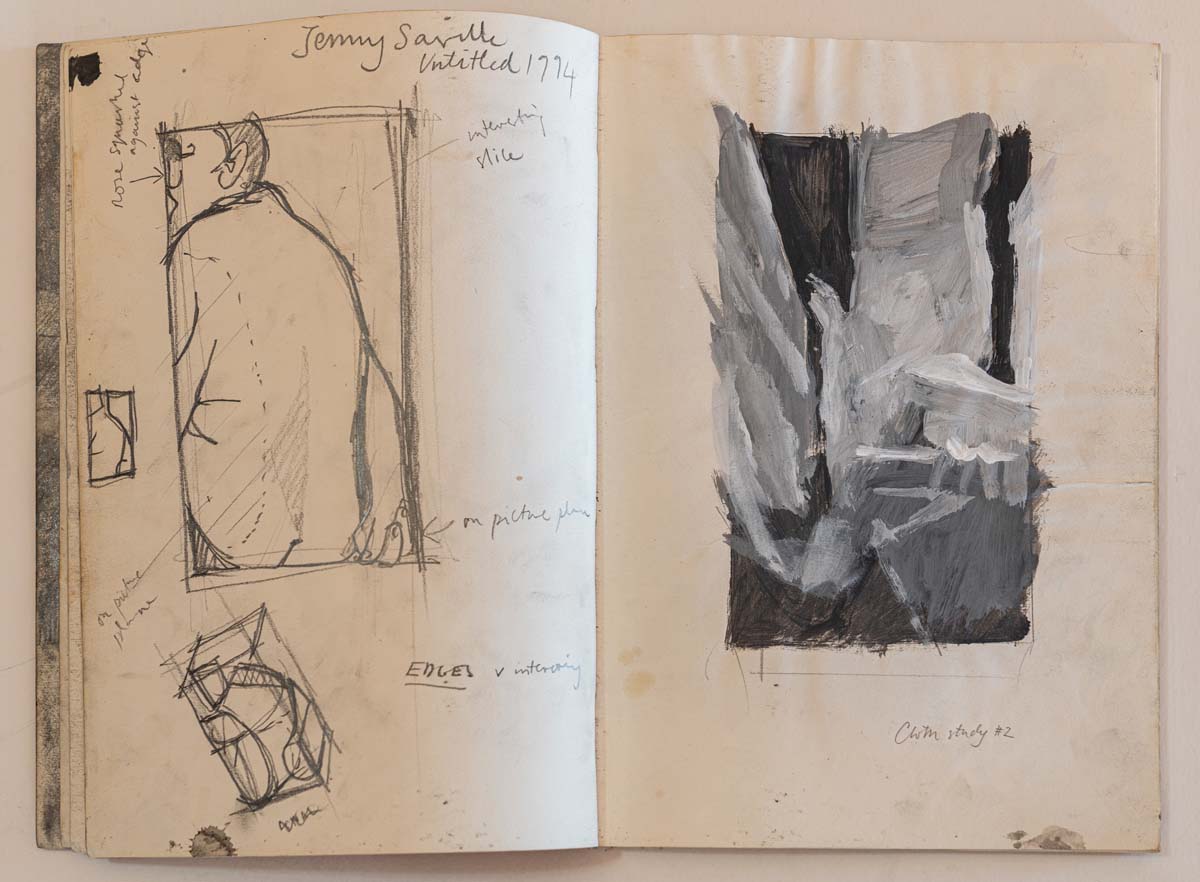 Jenny Saville
Untitled 1994
nose squashed
against edge
interesting
slice
on picture plane
on picture
plane
EDGES v interesting
Cloth study #2